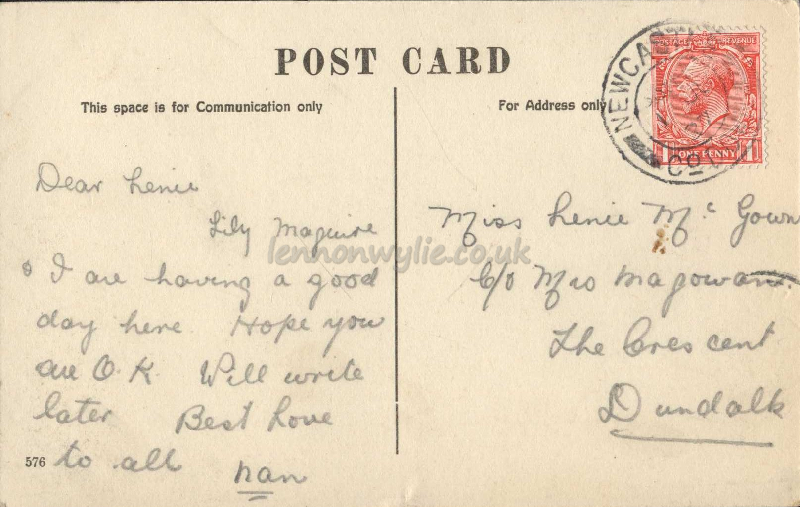 POST CARD
This space is for Communication only
For Address only
NEWCASTLE
Co.
POSTAGE REVENUE
ONE PENNY
Dear Lenie
Lily Maguire
lennonwylie.co.uk
& I are having a good
day here Hope you
are O.K. Will write
later Best Love
to all nan
576
Miss Lenie Mc Gown
C/o Mrs Magowan.
The Crescent
Dundalk